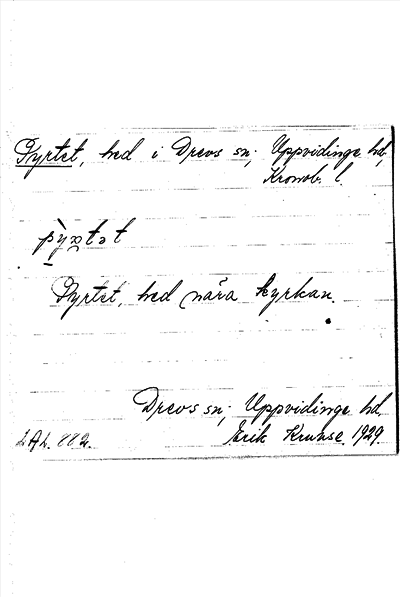 Pyrtet, hed i Drevs sn; Uppvidinge hd,
Kronob. l.
Pyrtet, hed nära kyrkan
Drevs sn; Uppvidinge hd.
L.A.L. 882. Erik Kruuse. 1929.